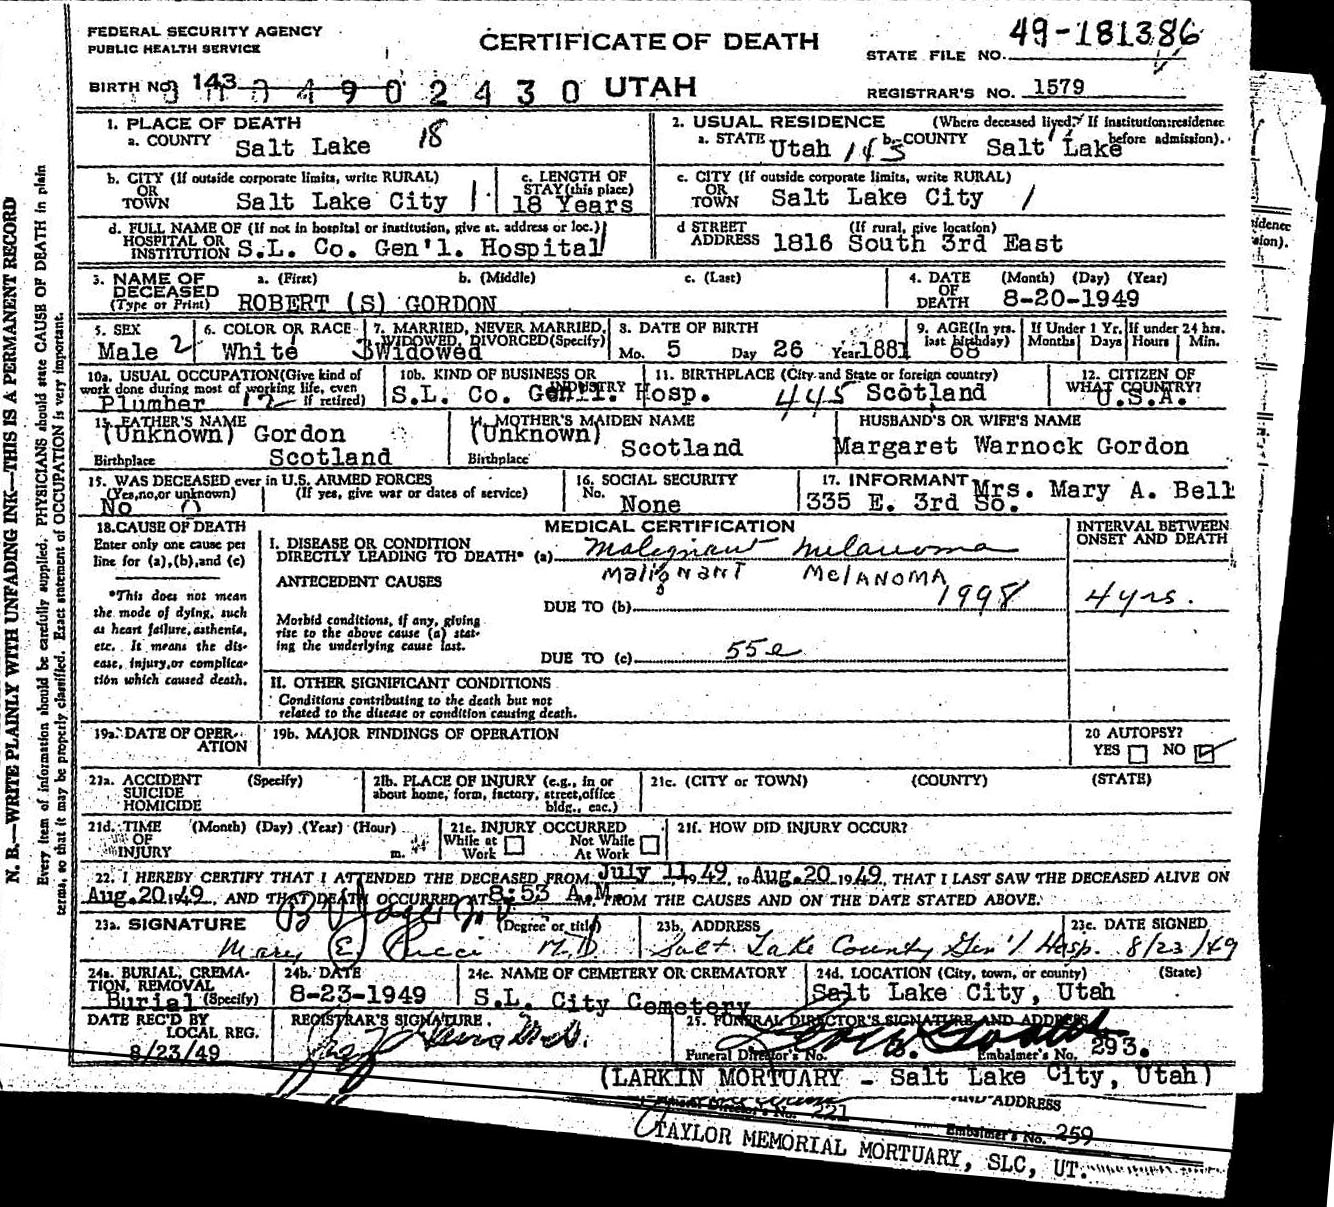 FEDERAL SECURITY AGENCY
PUBLIC HEALTH SERVICE
CERTIFICATE OF DEATH
49-181386
STATE FILE NO.
BIRTH NO. 143
4 9 0 2 4 3 0 UTAH
REGISTRAR'S NO. 1579
1. PLACE OF DEATH
a. COUNTY Salt Lake 18
2. USUAL RESIDENCE (Where deceased lived. If institution: residence before admission).
a. STATE Utah 143 b. COUNTY Salt Lake
b. CITY (If outside corporate limits, write RURAL)
OR TOWN Salt Lake City 1
c. LENGTH OF STAY (this place)
18 Years
c. CITY (If outside corporate limits, write RURAL)
OR TOWN Salt Lake City 1
d. FULL NAME OF (If not in hospital or institution, give st. address or loc.)
HOSPITAL OR INSTITUTION S.L. Co. Gen'l. Hospital
d STREET ADDRESS (If rural, give location)
1816 South 3rd East
3. NAME OF DECEASED (Type or Print)
a. (First) b. (Middle) c. (Last)
ROBERT (S) GORDON
4. DATE OF DEATH (Month) (Day) (Year)
8-20-1949
5. SEX
Male 2
6. COLOR OR RACE
White
7. MARRIED, NEVER MARRIED, WIDOWED, DIVORCED (Specify)
3 Widowed
8. DATE OF BIRTH
Mo. 5 Day 26 Year 1881
9. AGE (In yrs. last birthday)
68
If Under 1 Yr. Months Days
If under 24 hrs. Hours Min.
10a. USUAL OCCUPATION (Give kind of work done during most of working life, even if retired)
Plumber
10b. KIND OF BUSINESS OR INDUSTRY
S.L. Co. Gen'l. Hosp.
11. BIRTHPLACE (City and State or foreign country)
445 Scotland
12. CITIZEN OF WHAT COUNTRY?
U.S.A.
13. FATHER'S NAME
(Unknown) Gordon
Birthplace Scotland
14. MOTHER'S MAIDEN NAME
(Unknown)
Birthplace Scotland
HUSBAND'S OR WIFE'S NAME
Margaret Warnock Gordon
15. WAS DECEASED ever in U.S. ARMED FORCES
(Yes, no, or unknown) (If yes, give war or dates of service)
No 0
16. SOCIAL SECURITY No.
None
17. INFORMANT Mrs. Mary A. Bell
335 E. 3rd So.
18. CAUSE OF DEATH
Enter only one cause per line for (a), (b), and (c)
*This does not mean the mode of dying, such as heart failure, asthenia, etc. It means the disease, injury, or complication which caused death.
MEDICAL CERTIFICATION
I. DISEASE OR CONDITION DIRECTLY LEADING TO DEATH* (a) Malignant Melanoma
MaligNANT MelANOMA
ANTECEDENT CAUSES
DUE TO (b) 1998
Morbid conditions, if any, giving rise to the above cause (a) stating the underlying cause last.
DUE TO (c) 55e
INTERVAL BETWEEN ONSET AND DEATH
4 yrs.
II. OTHER SIGNIFICANT CONDITIONS
Conditions contributing to the death but not related to the disease or condition causing death.
19a. DATE OF OPERATION
19b. MAJOR FINDINGS OF OPERATION
20 AUTOPSY?
YES NO
21a. ACCIDENT SUICIDE HOMICIDE (Specify)
21b. PLACE OF INJURY (e.g., in or about home, form, factory, street, office bldg., etc.)
21c. (CITY or TOWN) (COUNTY) (STATE)
21d. TIME OF INJURY (Month) (Day) (Year) (Hour) m.
21e. INJURY OCCURRED
While at Work Not While At Work
21f. HOW DID INJURY OCCUR?
22. I HEREBY CERTIFY THAT I ATTENDED THE DECEASED FROM July 11, 19 49, to Aug. 20 19 49, THAT I LAST SAW THE DECEASED ALIVE ON
Aug. 20 19 49, AND THAT DEATH OCCURRED AT 8:53 A.M. M. FROM THE CAUSES AND ON THE DATE STATED ABOVE.
23a. SIGNATURE (Degree or title)
Mary E. Pucci M.D.
23b. ADDRESS
Salt Lake County Gen'l Hosp.
23c. DATE SIGNED
8/23/49
24a. BURIAL, CREMATION, REMOVAL (Specify)
Burial
24b. DATE
8-23-1949
24c. NAME OF CEMETERY OR CREMATORY
S.L. City Cemetery
24d. LOCATION (City, town, or county) (State)
Salt Lake City, Utah
DATE REC'D BY LOCAL REG.
8/23/49
REGISTRAR'S SIGNATURE
25. FUNERAL DIRECTOR'S SIGNATURE AND ADDRESS
Funeral Director's No. Embalmer's No. 293.
(LARKIN MORTUARY - Salt Lake City, Utah)
AND ADDRESS
Funeral Director's No. 221
Embalmer's No. 259
TAYLOR MEMORIAL MORTUARY, SLC, UT.
N. B.—WRITE PLAINLY WITH UNFADING INK—THIS IS A PERMANENT RECORD
Every item of information should be carefully supplied. PHYSICIANS should state CAUSE OF DEATH in plain
terms, so that it may be properly classified. Exact statement of OCCUPATION is very important.